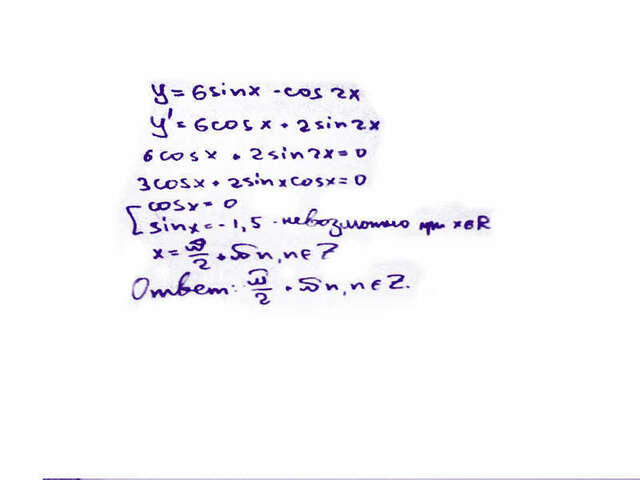 y = 6sinx - cos 2x
y' = 6cosx + 2sin2x
6cosx + 2sin2x = 0
3cosx + 2sinxcosx = 0
[cosx = 0
sinx = -1,5 - невозможно при x∈R
x = π/2 + πn, n∈Z
Ответ: π/2 + πn, n∈Z.